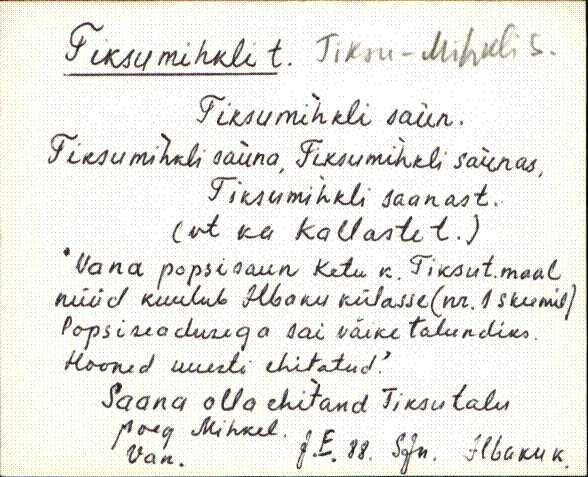 Tiksumihkli t. Tiksu-Mihkli s.
Tiksumìhkli saùn.
Tiksumìhkli saùna, Tiksumìhkli saùnas,
Tiksumìhkli saanast.
(vt ka Kallaste t.)
"Vana popsisaun Ketu k. Tiksu t. maal
nüüd kuulub Ilbaku külasse (nr. 1 skeemil)
Popsiseadusega sai väike talundiks.
Hooned uuesti ehitatud."
Saana olla ehitand Tiksu talu
poeg Mihkel.
Van. J.E. 88. Sjn. Ilbaku k.